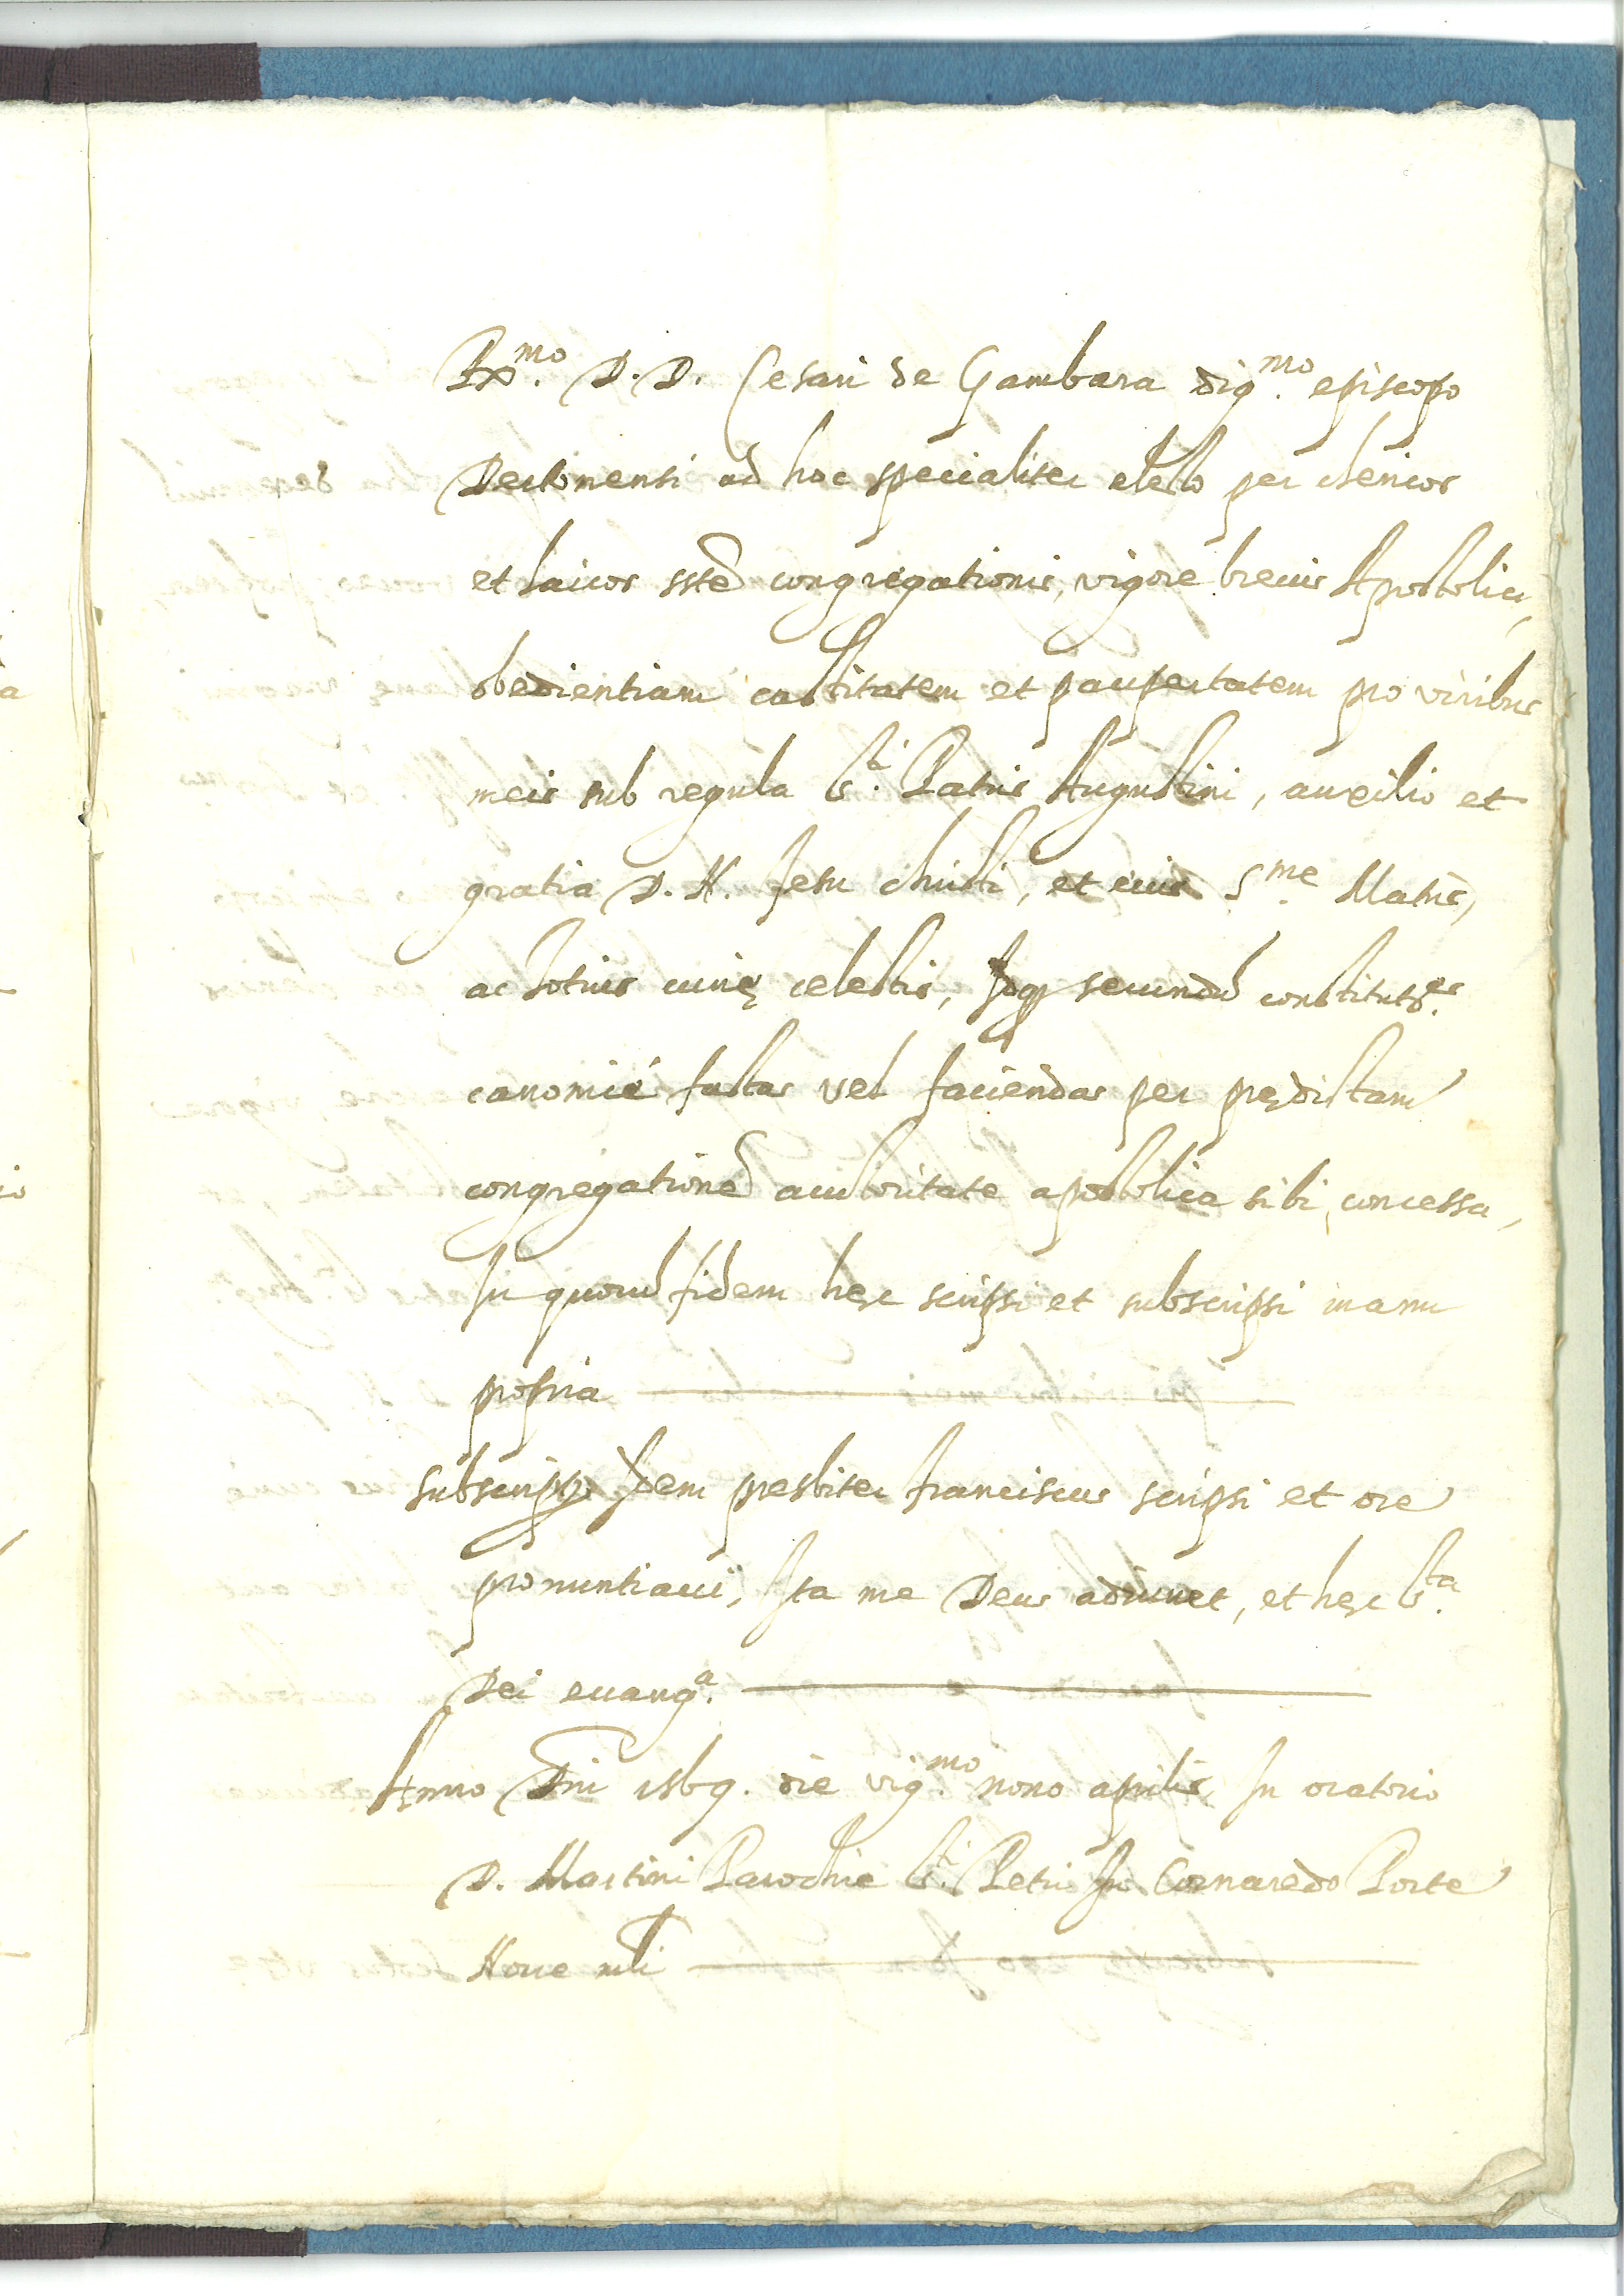 Rx.mo D.D. Cesari de Gambara dig.mo episcopo
Dertonensi ad hoc specialiter electo per clericos
et laicos sstē congregationis, vigore brevis Apostolici,
obedientiam castitatem et paupertatem pro viribus
meis sub regula S.ti Patris Augustini, auxilio et
gratia D. N. Jesu christi, et eius S.me Matris,
ac totius curię celestis, secundū constituto.es
canonicé factas vel faciendas per prędictam
congregationē auctoritate apostolica sibi concessa,
In quorū fidem hęc scripsi et subscripsi manu
propria
Idem presbiter franciscus scripsi et ore
pronuntiavi, Ita me Deus adiuvet, et hęc S.ta
Dei evang.a
Anno Dni 1569. die vig.mo nono aprilis, In oratorio
D. Martini Parochie S.ti Petri In Cornaredo Porte
Nove mli